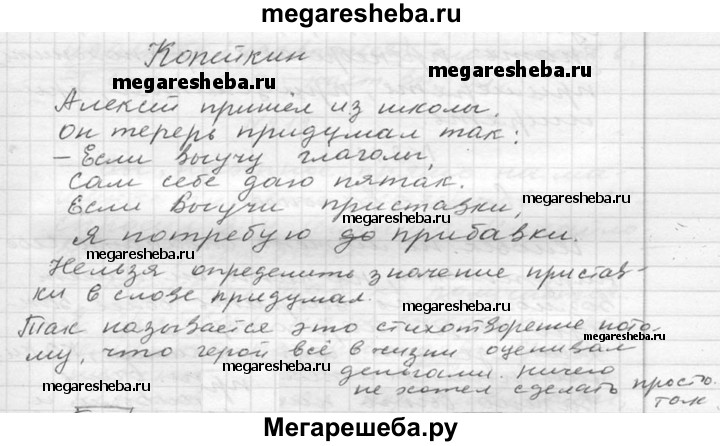 megaresheba.ru
Копейкин
megaresheba.ru
megaresheba.ru
Алексей пришёл из школы.
Он терерь придумал так:
– Если выучу глаголы,
megaresheba.ru
Сам себе даю пятак.
Если выучи приставки,
megaresheba.ru
Я потребую до прибавки.
megaresheba.ru
Нельзя определить значение пристав-
ки в слове придумал.
megaresheba.ru
Так называется это стихотворение пото-
му, что герой всё в жизни оценивал
деньгами. Ничего
megaresheba.ru
megaresheba.ru
не хотел сделать просто
так.
Мегарешеба.ру